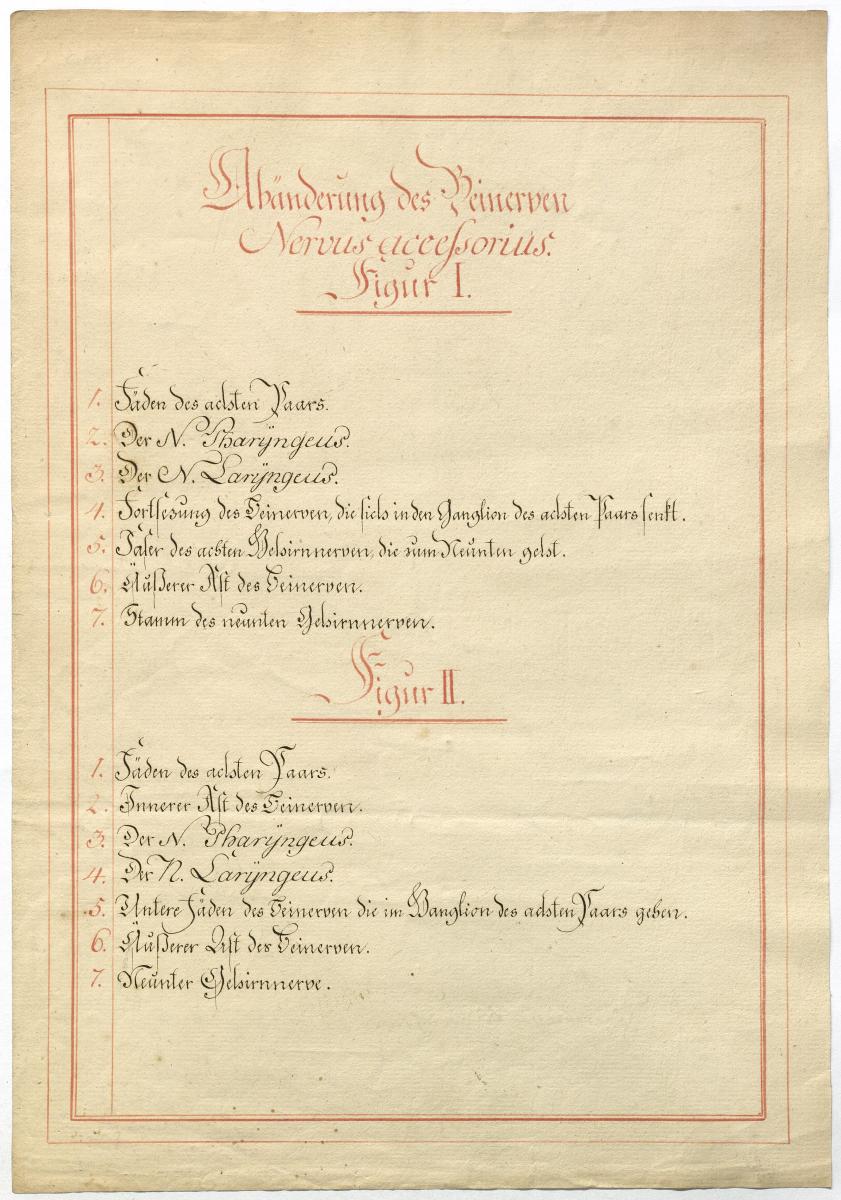 Abänderung des Beinerven
Nervus accessorius.
Figur I.
1. Fäden des achten Paars.
2. Der N. Pharÿngeus.
3. Der N. Larÿngeus.
4. Fortsezung des Beinerven, die sich in den Ganglion des achten Paars senkt.
5. Faser des achten Gehirnnerven, die zum Neunten geht.
6. Äußerer Ast des Beinerven.
7. Stamm des neunten Gehirnnerven.
Figur II.
1. Fäden des achten Paars.
2. Innerer Ast des Beinerven.
3. Der N. Pharÿngeus.
4. Der N. Larÿngeus.
5. Untere Fäden des Beinerven die im Ganglion des achten Paars gehen.
6. Äußerer Ast des Beinerven.
7. Neunter Gehirnnerve.